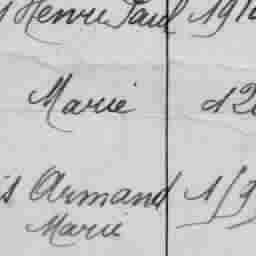 Henri Paul 191
Marie 12
is Armand 1/9
Marie